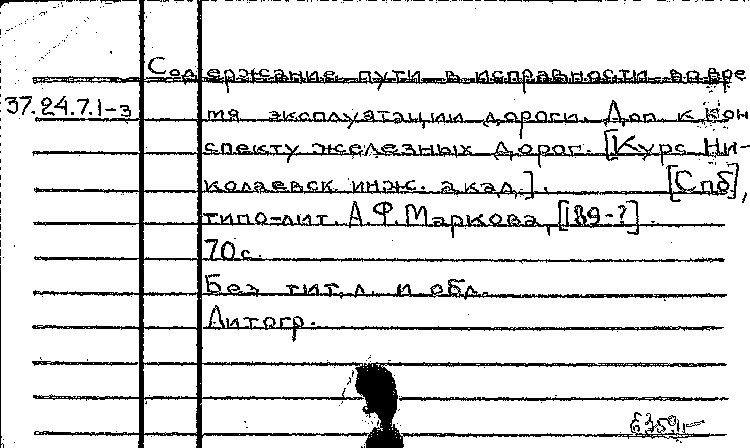 Содержание пути в исправности во вре
37.24.7.1-3
мя эксплуатации дороги. Доп. к кон
спекту железных дорог. [Курс Ни-
колаевск инж. акад.]. [Спб],
типо-лит. А.Ф. Маркова, [189-?].
70 с.
Без тит. л. и обл.
Литогр.